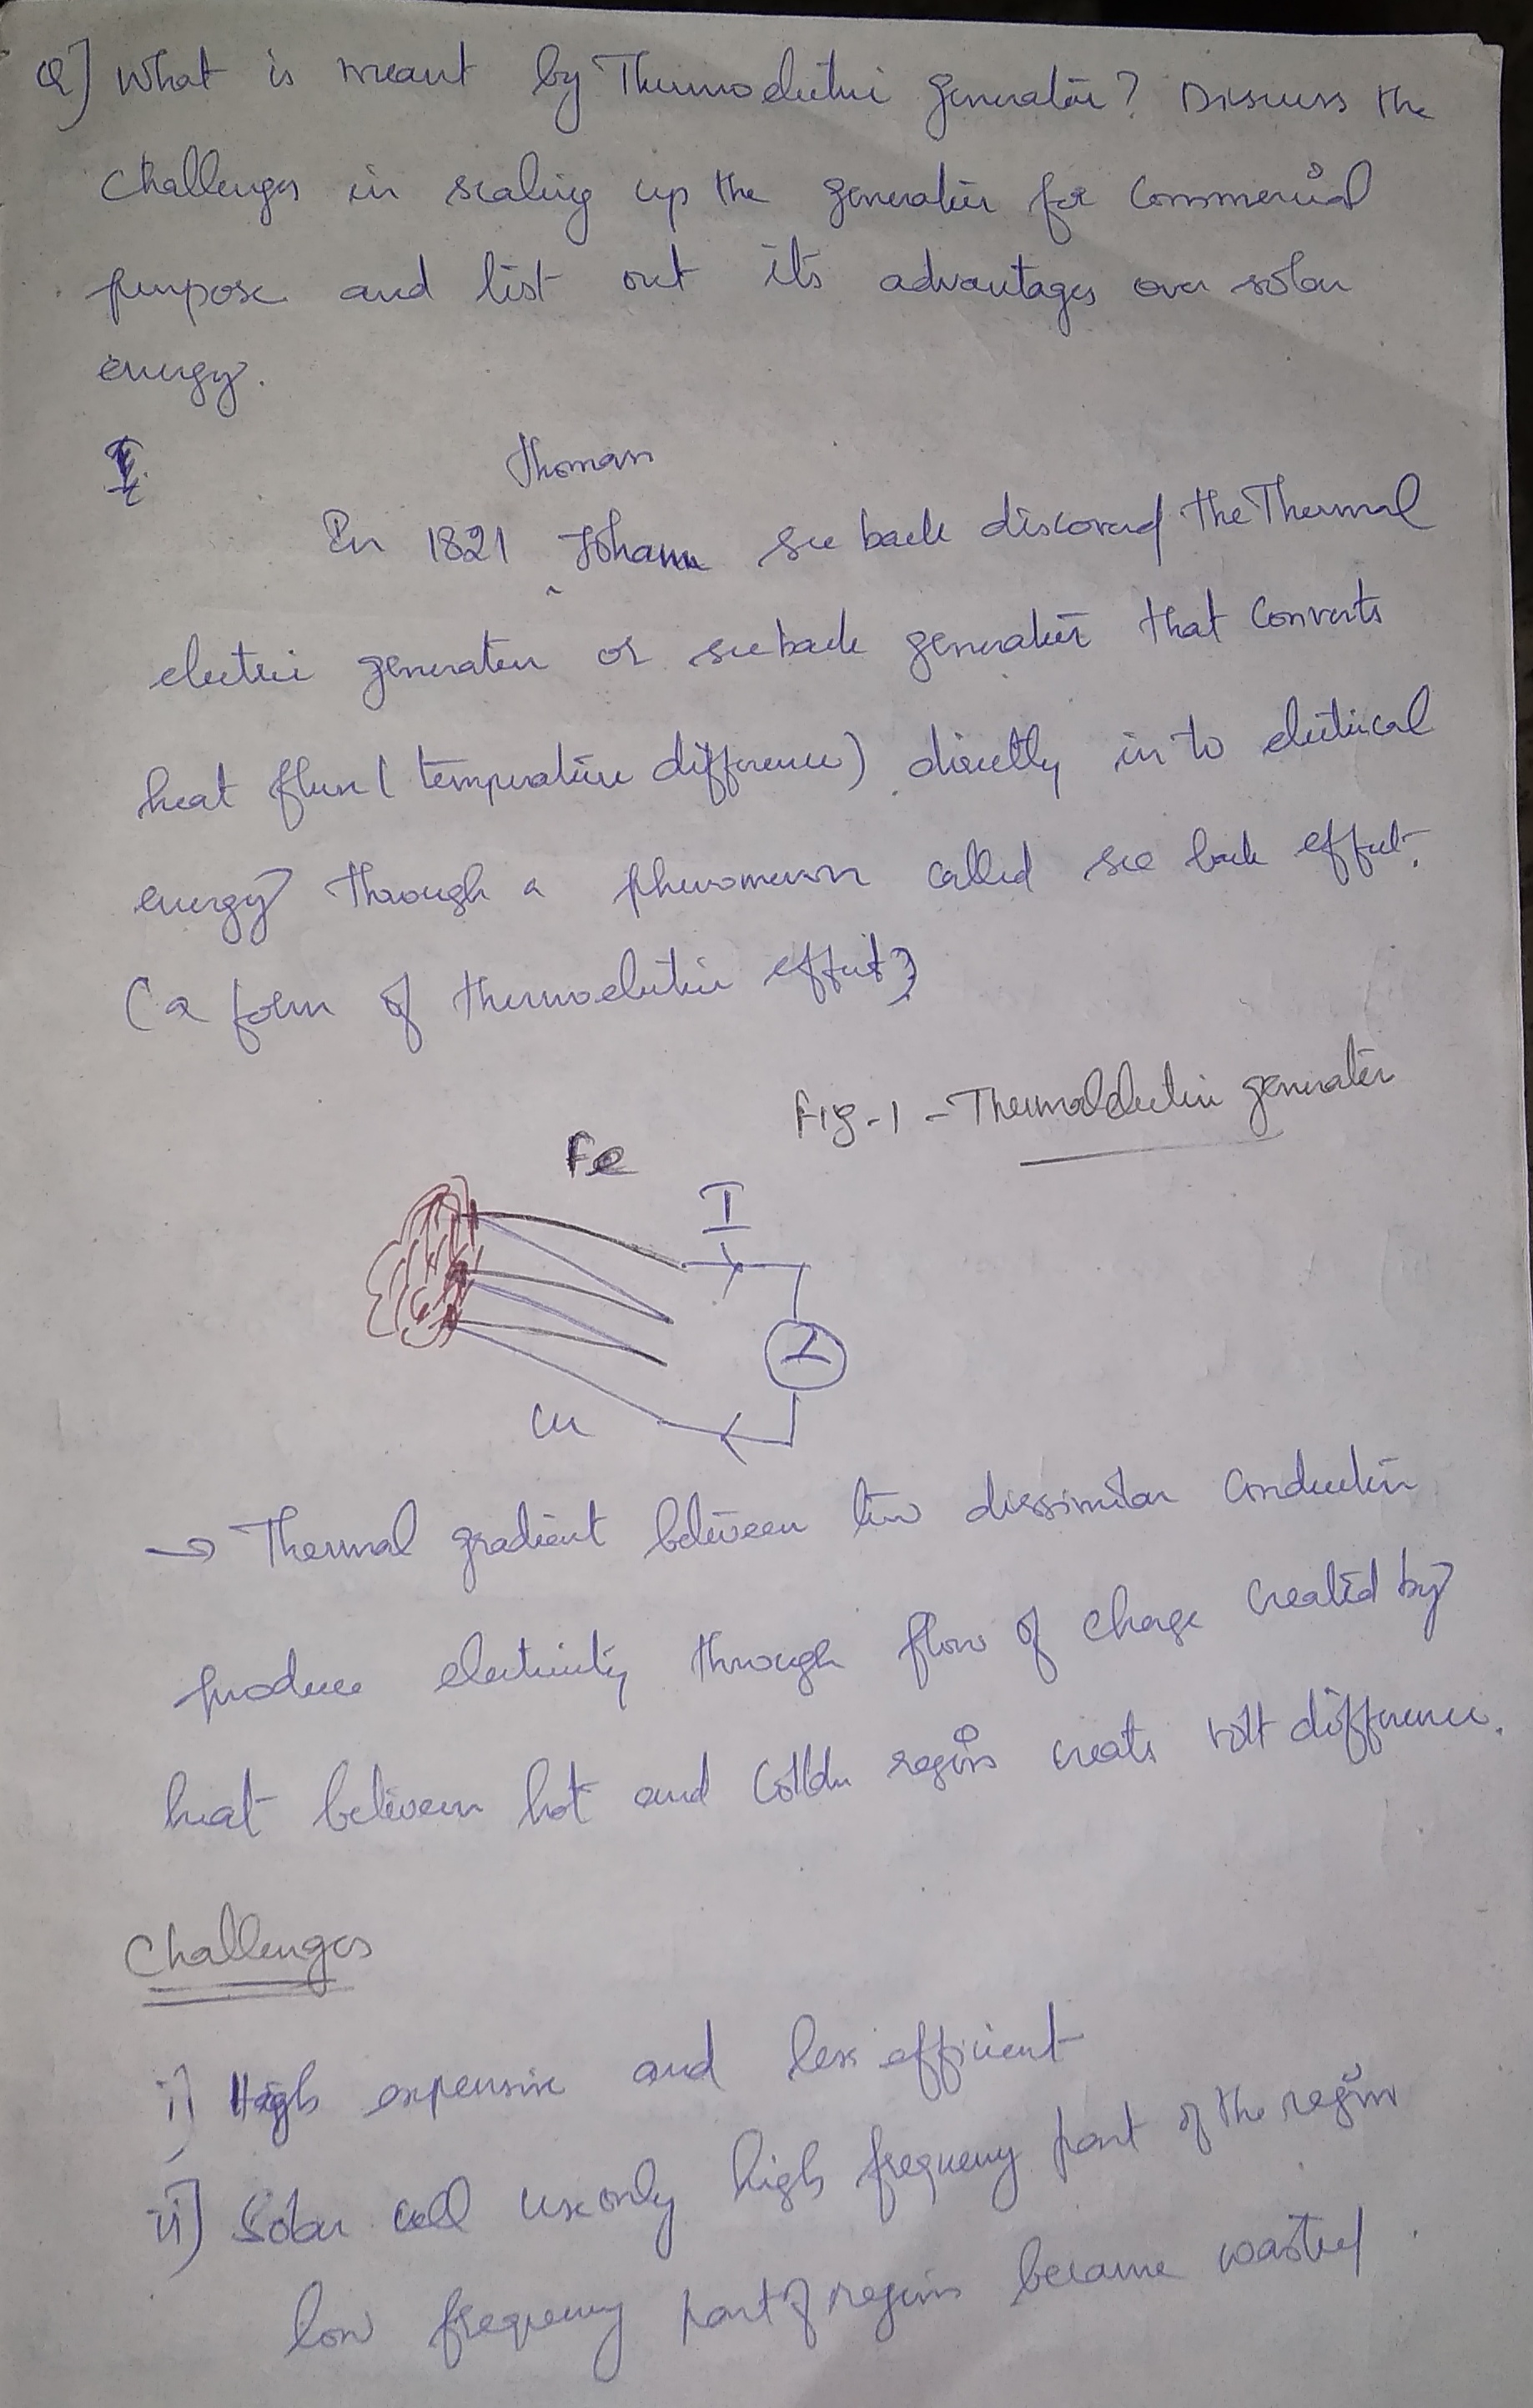 Q] What is meant by Thermoelectric generator? Discuss the
Challenges in scaling up the generator for Commercial
purpose and list out its advantages over solar
energy.
Thoman
In 1821 Johann see back discoverd the Thermal
electric generator or seeback generator that converts
heat flux (temperature difference) directly in to electrical
energy through a phenomenon called see back effect.
(a form of thermoelectric effect)
Fig-1 - Thermalelectric generator
Fe
I
I
Cu
→ Thermal gradient between two dissimilar conductor
produce electricity through flow of charge created by
heat between hot and colder region create volt difference.
Challenges
i) High expensive and less efficient
ii) Solar cell use only high frequency part of the region
low frequency part of region became wasted